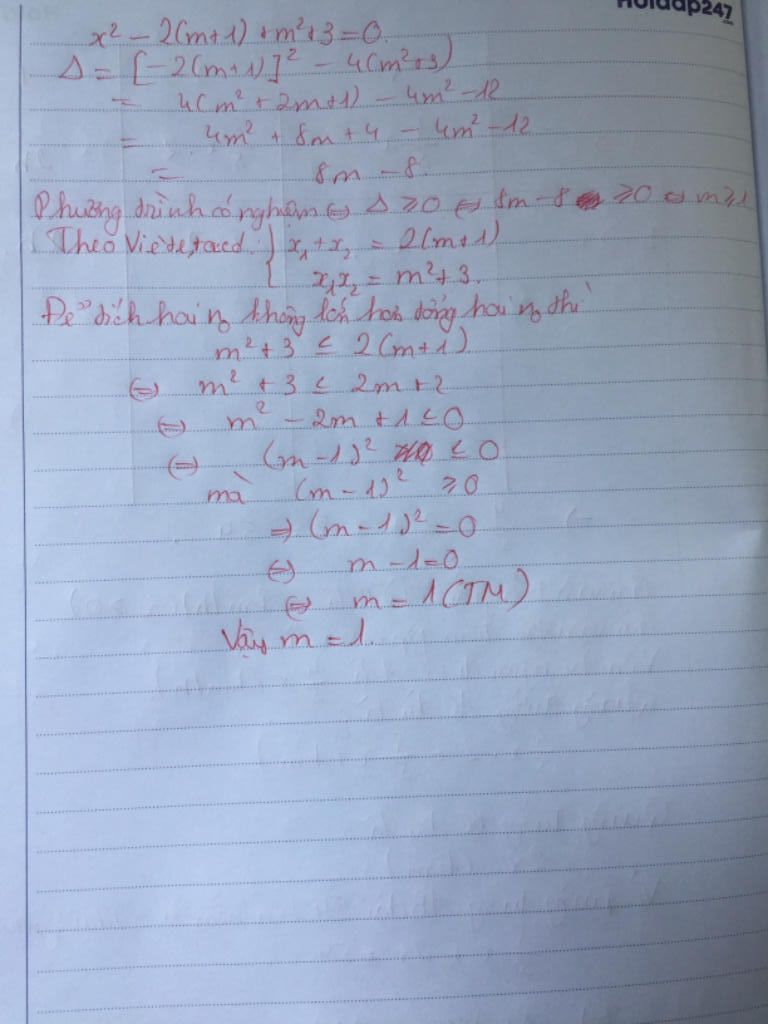 Hoidap247
x² - 2(m+1) + m²+3 = 0
Δ = [-2(m+1)]² - 4(m²+3)
= 4(m² + 2m+1) - 4m² - 12
= 4m² + 8m + 4 - 4m² - 12
= 8m - 8
Phương trình có nghiệm ⇔ Δ ≥ 0 ⇔ 8m - 8 ≥ 0 ⇔ m ≥ 1
Theo Viète, ta có { x₁ + x₂ = 2(m+1)
x₁x₂ = m² + 3.
Để tích hai no không lớn hơn tổng hai no thì
m² + 3 ≤ 2(m+1)
⇔ m² + 3 ≤ 2m + 2
⇔ m² - 2m + 1 ≤ 0
⇔ (m-1)² ≤ 0
mà (m-1)² ≥ 0
⇒ (m-1)² = 0
⇔ m - 1 = 0
⇔ m = 1 (TM)
Vậy m = 1.